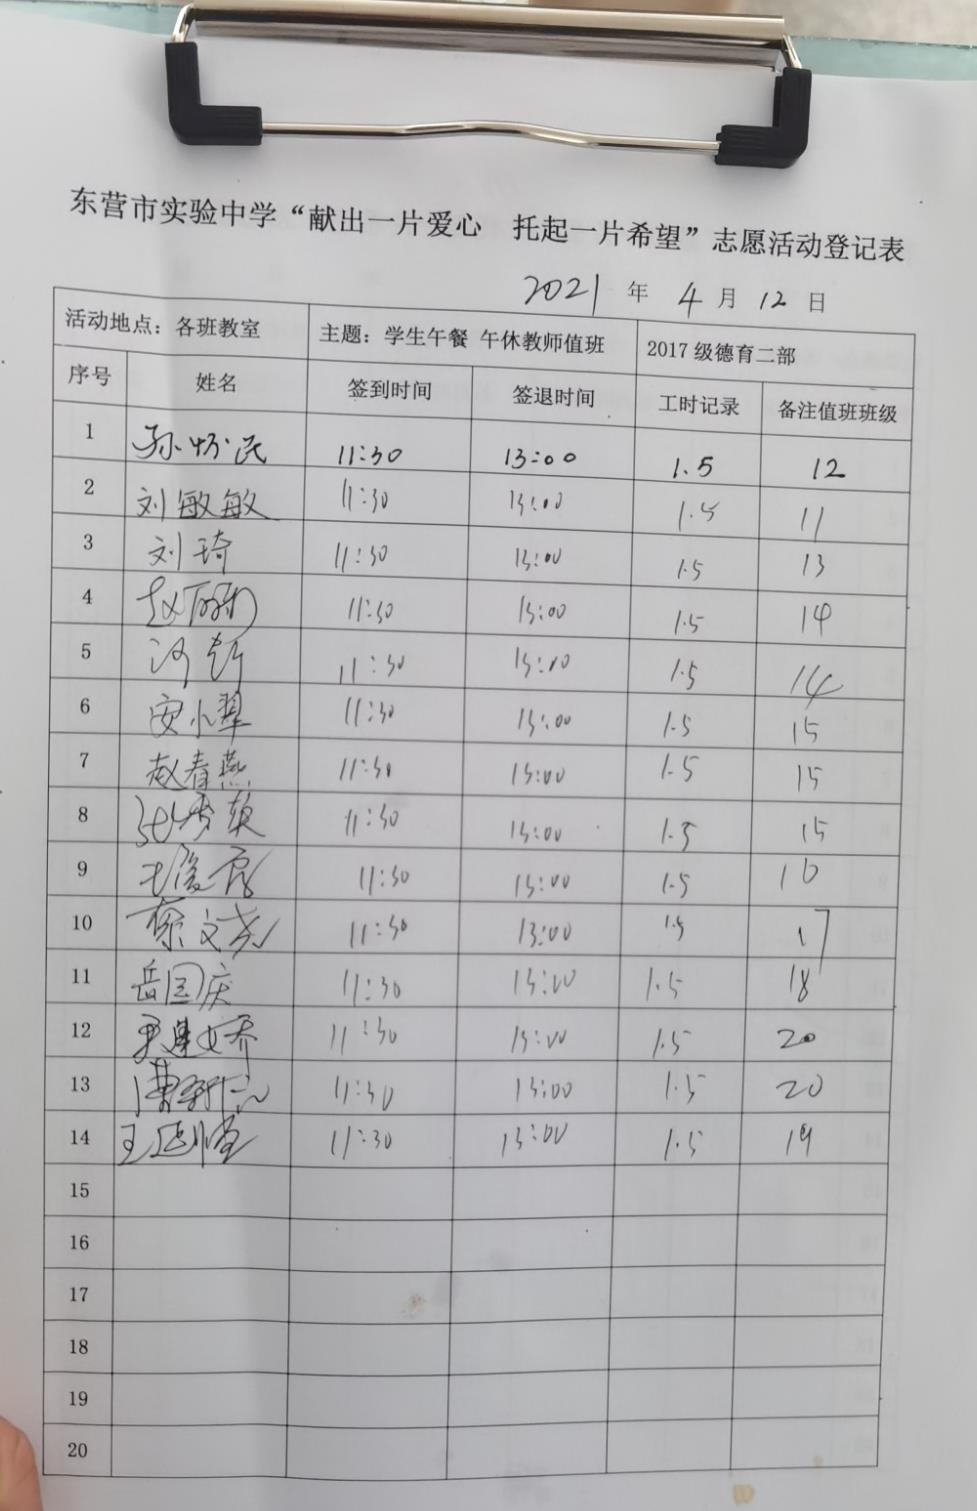 东营市实验中学“献出一片爱心 托起一片希望”志愿活动登记表
2021 年 4 月 12 日
活动地点：各班教室 主题：学生午餐 午休教师值班 2017 级德育二部
序号 姓名 签到时间 签退时间 工时记录 备注值班班级
1 孙 民 11:30 13:00 1.5 12
2 刘敏敏 11:30 13:00 1.5 11
3 刘琦 11:30 13:00 1.5 13
4 赵丽 11:30 13:00 1.5 14
5 11:30 13:00 1.5 14
6 安小翠 11:30 13:00 1.5 15
7 赵春燕 11:30 13:00 1.5 15
8 11:30 13:00 1.5 15
9 王俊 11:30 13:00 1.5
10 蔡文 11:30 13:00 1.5 17
11 岳国庆 11:30 13:00 1.5 18
12 建娇 11:30 13:00 1.5 20
13 曹 11:30 13:00 1.5 20
14 王延 11:30 13:00 1.5 19
15
16
17
18
19
20